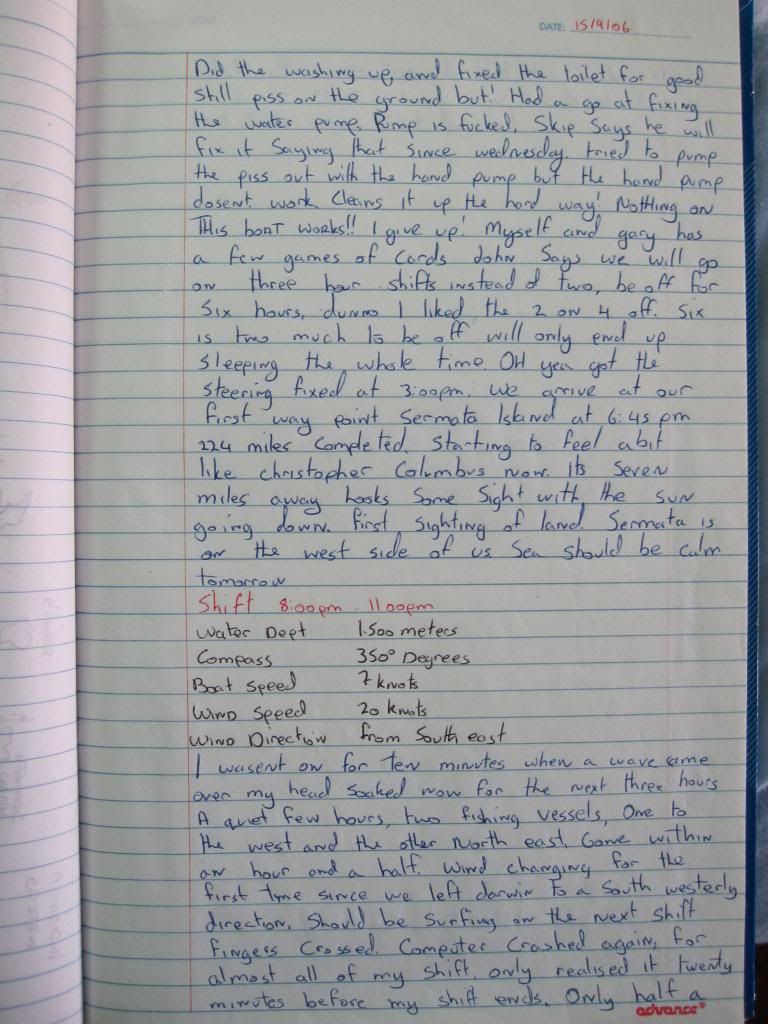 DATE: 15/9/06
Did the washing up, and fixed the toilet for good
Still piss on the ground but! Had a go at fixing
the water pump, Pump is fucked, Skip Says he will
fix it Saying that since wednesday. tried to pump
the piss out with the hand pump but the hand pump
dosent work. Cleans it up the hard way! Nothing on
This boat works!! I give up! Myself and gary has
a few games of Cards John Says we will go
on three hour shifts instead of two, be off for
Six hours, dunno I liked the 2 on 4 off. Six
is two much to be off will only end up
Sleeping the whole time. OH yea got the
Steering fixed at 3:00pm. We arrive at our
first way point Sermata Island at 6:45 pm
224 miles Completed. Starting to feel abit
like christopher Columbus now. Its Seven
miles away looks Some Sight with the sun
going down. First sighting of land. Sermata is
on the west side of us Sea Should be calm
tomorrow
Shift 8:00pm - 11 00pm
Water Dept 1.500 meters
Compass 350° Degrees
Boat Speed 7 knots
Wind Speed 20 knots
Wind Direction from South east
I wasent on for ten minutes when a wave came
over my head Soaked now for the next three hours
A quiet few hours, two fishing vessels, One to
the west and the other North east. Gone within
an hour and a half. Wind changing for the
first tyme since we left darwin to a South westerly
direction, Should be Surfing on the next Shift
Fingess Crossed. Computer Crashed again, for
almost all of my Shift, only realised it twenty
minutes before my shift ends. Only half a
advance®